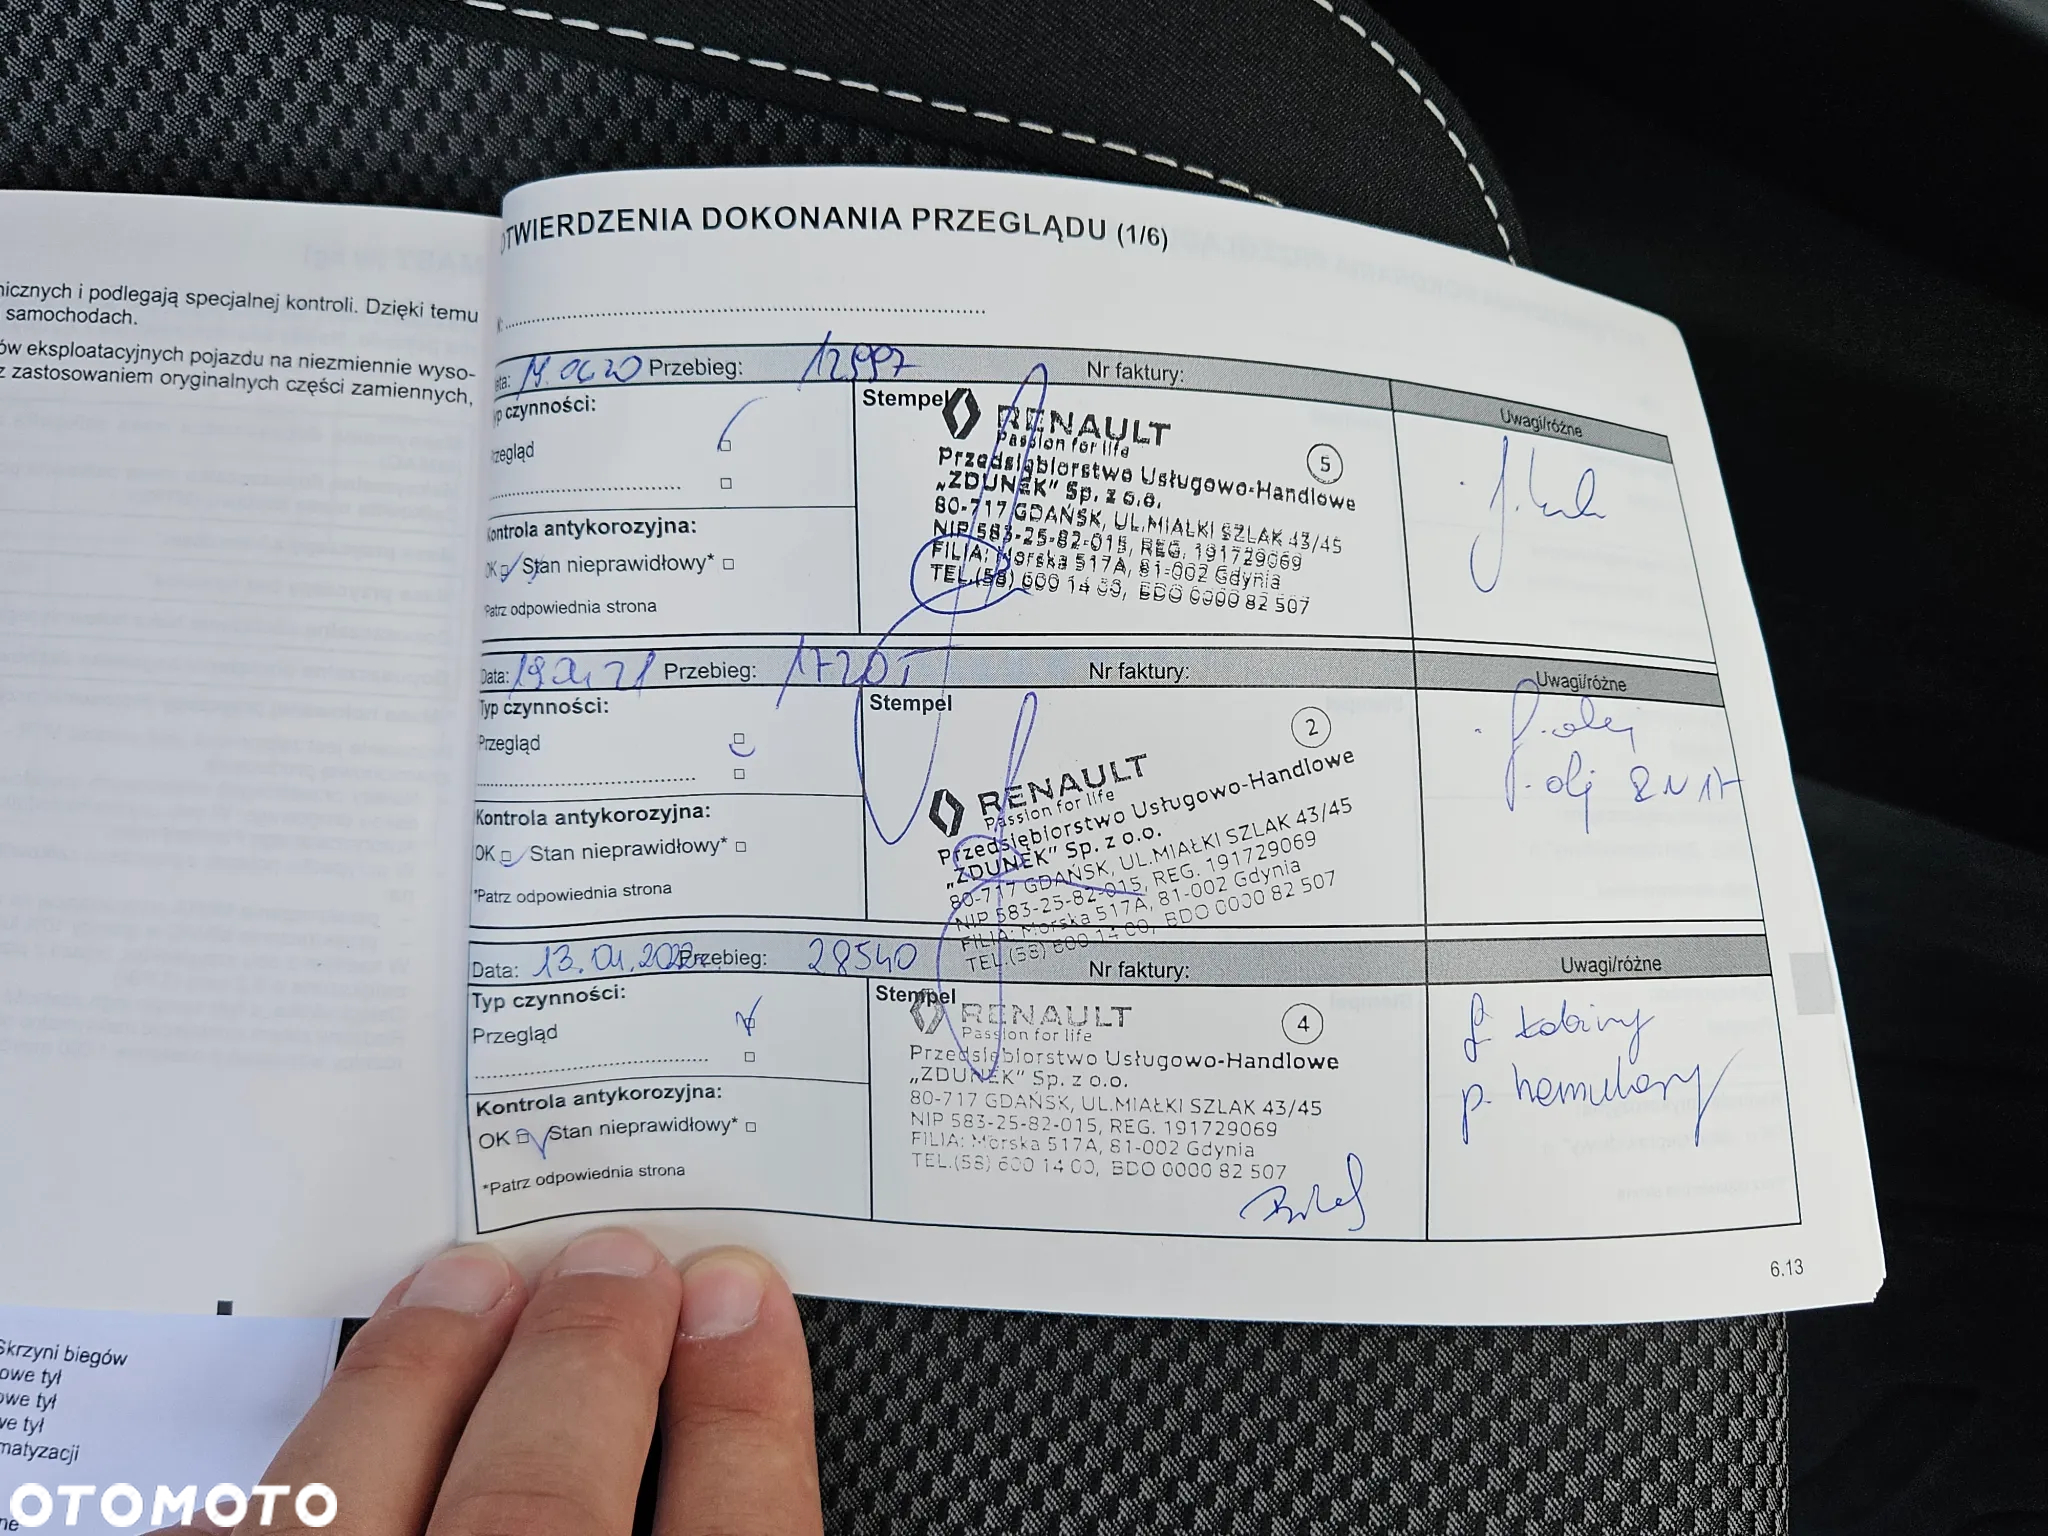 nicznych i podlegają specjalnej kontroli. Dzięki temu
samochodach.
ów eksploatacyjnych pojazdu na niezmiennie wyso-
z zastosowaniem oryginalnych części zamiennych,
TWIERDZENIA DOKONANIA PRZEGLĄDU (1/6)
Przebieg: 12997 Nr faktury:
czynności: Stempel Uwagi/różne
RENAULT
Passion for life
5
Przedsiębiorstwo Usługowo-Handlowe
„ZDUNEK" Sp. z o.o.
80-717 GDAŃSK, UL.MIAŁKI SZLAK 43/45
NIP 583-25-82-015, REG. 191729069
FILIA: Morska 517A, 81-002 Gdynia
TEL.(58) 600 14 00, BDO 0000 82 507
zegląd
ontrola antykorozyjna:
OK Stan nieprawidłowy*
*Patrz odpowiednia strona
Data: Przebieg: Nr faktury:
Typ czynności: Stempel Uwagi/różne
Przegląd
Kontrola antykorozyjna:
OK Stan nieprawidłowy*
*Patrz odpowiednia strona
2
RENAULT
Passion for life
Przedsiębiorstwo Usługowo-Handlowe
„ZDUNEK" Sp. z o.o.
80-717 GDAŃSK, UL.MIAŁKI SZLAK 43/45
NIP 583-25-82-015, REG. 191729069
FILIA: Morska 517A, 81-002 Gdynia
TEL.(58) 600 14 00, BDO 0000 82 507
Data: 13.01.2022 Przebieg: 28540 Nr faktury:
Typ czynności: Stempel Uwagi/różne
Przegląd
Kontrola antykorozyjna:
OK Stan nieprawidłowy*
*Patrz odpowiednia strona
RENAULT
Passion for life
4
Przedsiębiorstwo Usługowo-Handlowe
„ZDUNEK" Sp. z o.o.
80-717 GDAŃSK, UL.MIAŁKI SZLAK 43/45
NIP 583-25-82-015, REG. 191729069
FILIA: Morska 517A, 81-002 Gdynia
TEL.(58) 600 14 00, BDO 0000 82 507
6.13
Skrzyni biegów
owe tył
owe tył
we tył
matyzacji
OTOMOTO
ne